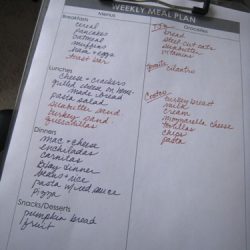 WEEKLY MEAL PLAN
Menus
Groceries
Breakfasts
cereal
pancakes
oatmeal
muffins
ham + eggs
toast bar
bread
steel cut oats
sunbutter
vitamins
cilantro
Lunches
cheese + crackers
grilled cheese on home-
made bread
pasta salad
sunbutter sand.
turkey sand.
quesadillas
Costco
turkey breast
milk
cream
mozzarella cheese
tortillas
chips
pasta
Dinners
mac + cheese
enchiladas
carnitas
Bday dinner
beans + rice
pasta w/ red sauce
pizza
Snacks/Desserts
pumpkin bread
fruit